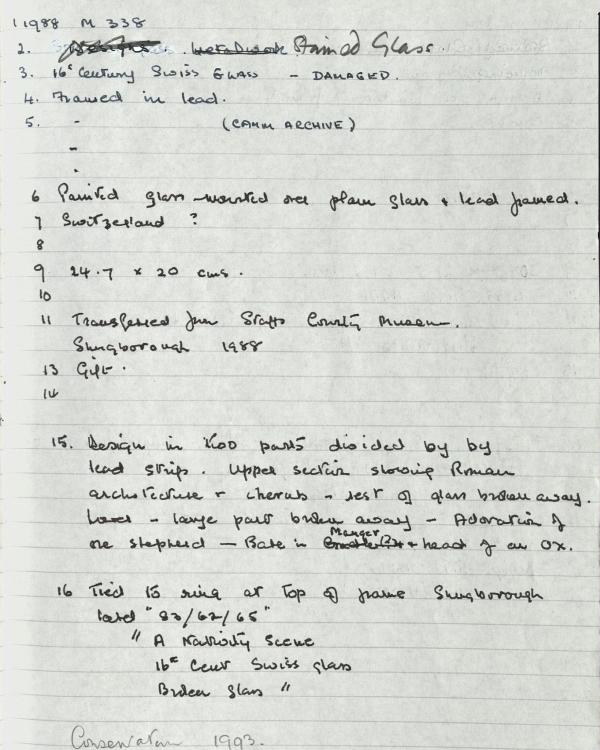 1 1988 M 338
2. Metalwork Stained Glass.
3. 16c Century Swiss Glass - DAMAGED.
4. Framed in lead.
5. - (CAMM ARCHIVE)
-
-
6 Painted glass mounted over plain glass & lead framed.
7 Switzerland ?
8
9 24.7 x 20 cms.
10
11 Transferred from Staffs County Museum.
Shugborough 1988
13 Gift.
14
15. Design in two parts divided by by
lead strips. Upper section showing Roman
architecture & cherub - rest of glass broken away.
Lower - large part broken away - Adoration of
one shepherd - Babe in Manger & head of an Ox.
16 Tied to ring at top of frame Shugborough
label "83/62/65"
" A Nativity Scene
16c Cent Swiss glass
Broken glass "
Conservation 1993.